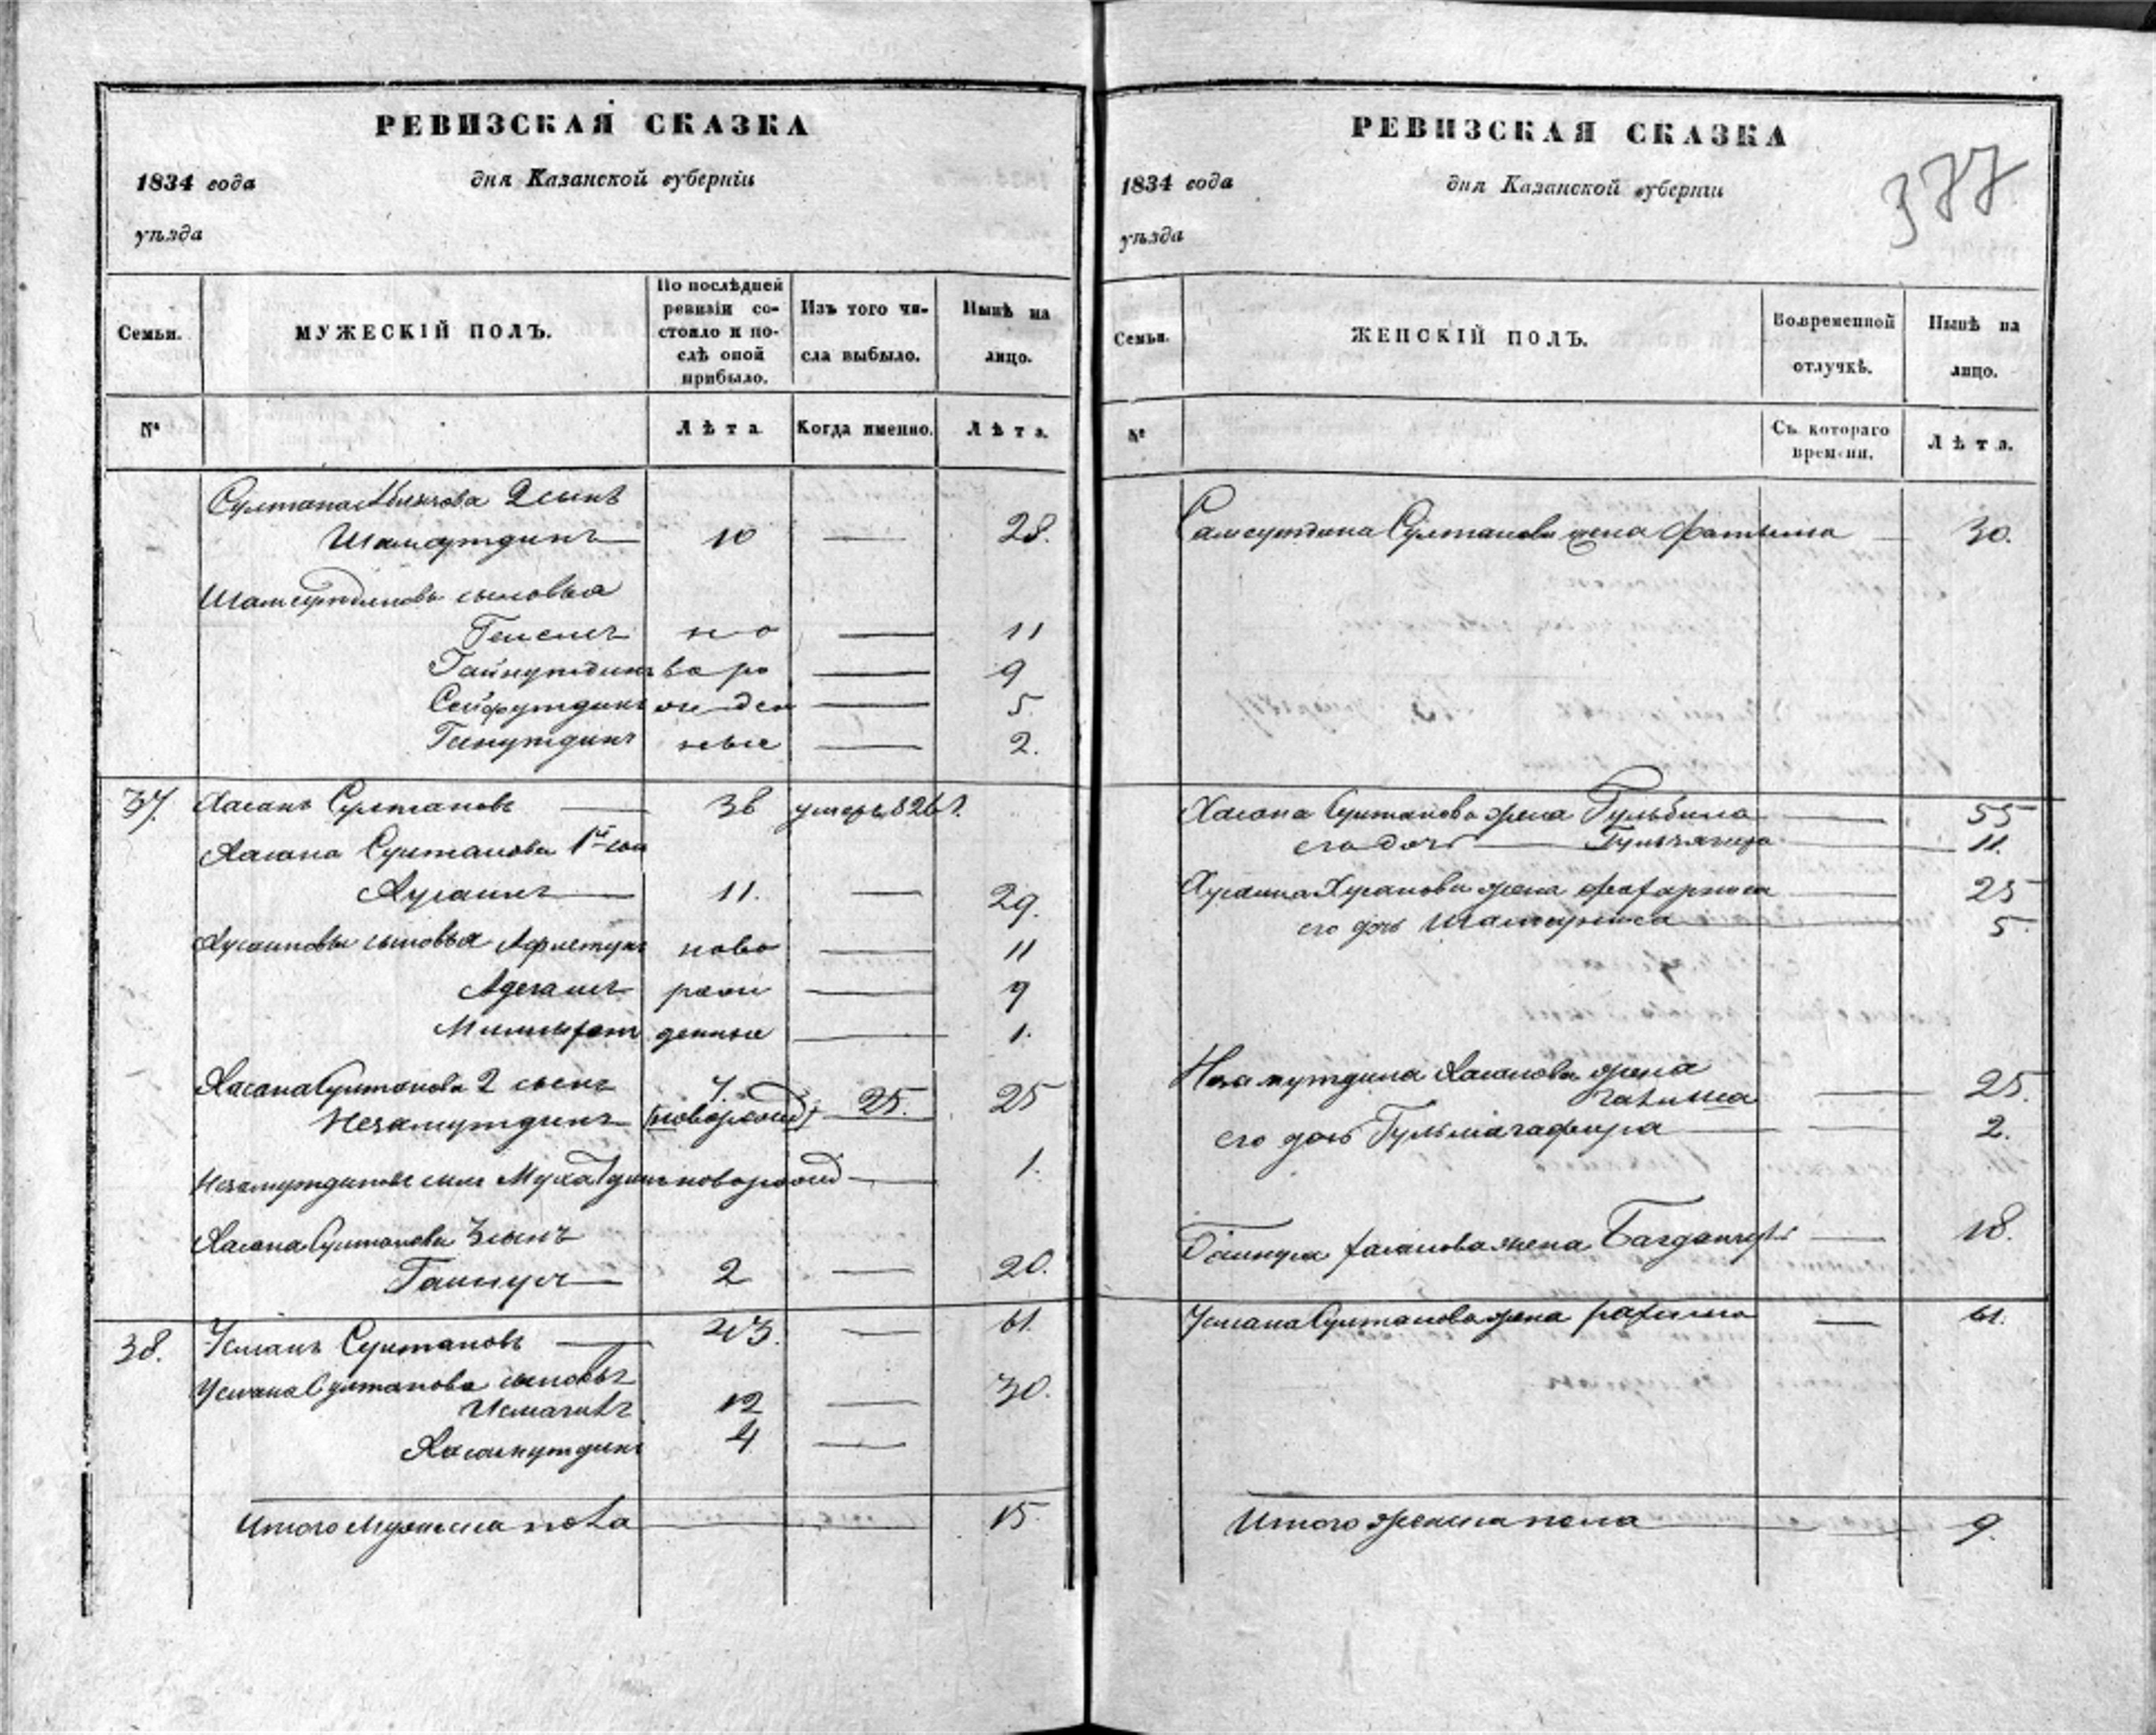 РЕВИЗСКАЯ СКАЗКА
1834 года дня Казанской губернiи
уѣзда
Семьи. МУЖЕСКIЙ ПОЛЪ. По послѣдней ревизiи состояло и послѣ оной прибыло. Изъ того числа выбыло. Нынѣ на лицо.
№ Лѣта Когда именно. Лѣта.
Султана 2 сынъ
Шамсутдинъ 10 — 28.
Шамсутдиновы сыновья
но — 11
Гайнутдинъ во ро — 9
Сейфутдинъ ж ден — 5
ные — 2.
37. Хасанъ Султановъ — 36 умеръ 826 г.
Хасана Султанова 1й сын
Хусаинъ — 11. — 29.
Хусаиновы сыновья ново — 11
рож — 9
денные — 1.
Хасана Султанова 2 сынъ 7.
Незамутдинъ — (наворожд) — 25. 25
Незамутдиновъ сынъ наворожд — 1.
Хасана Султанова 3 сынъ
2 — 20.
38. Усманъ Султановъ — 43. — 61.
Усмана Султанова сыновья
Исмагилъ 12 — 30.
Хасанутдинъ 4 —
Итого мужеска пола — 15
РЕВИЗСКАЯ СКАЗКА
1834 года дня Казанской губернiи
377
уѣзда
Семьи. ЖЕНСКIЙ ПОЛЪ. Во временной отлучкѣ. Нынѣ на лицо.
№ Съ котораго времени. Лѣта.
Самсутдина Султанова жена Фатыма — 30.
Хасана Султанова жена Гульбина — 55
его дочь — 11.
Хусаина Хусанова жена — 25
его дочь Шамсуниса — 5.
Незамутдина Хасанова жена
— 25.
его дочь — 2.
Хасанова жена — 18.
Усмана Султанова жена — 61.
Итого женска пола — 9.